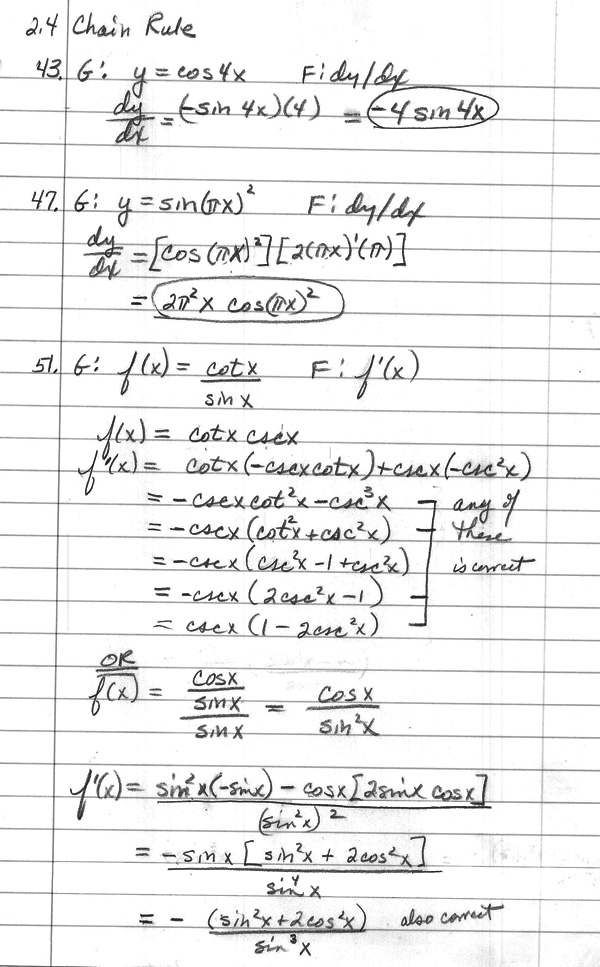 2.4 Chain Rule
43. G: y = cos4x F: dy/dx
dy/dx = (-sin 4x)(4) = -4 sin 4x
47. G: y = sin(πx)² F: dy/dx
dy/dx = [cos (πx)²][2(πx)'(π)]
= 2π²x cos(πx)²
51. G: f(x) = cotx / sin x F: f'(x)
f(x) = cotx cscx
f'(x) = cotx(-cscxcotx)+cscx(-csc²x)
= -cscxcot²x-csc³x any of
= -cscx(cot²x+csc²x) these
= -cscx(csc²x-1+csc²x) is correct
= -cscx(2csc²x-1)
= cscx(1-2csc²x)
OR
f(x) = (cosx/sinx)/sinx = cosx/sin²x
f'(x) = sin²x(-sinx) - cosx[2sinx cosx] / (sin²x)²
= -sinx[sin²x + 2cos²x] / sin⁴x
= - (sin²x+2cos²x) / sin³x also correct